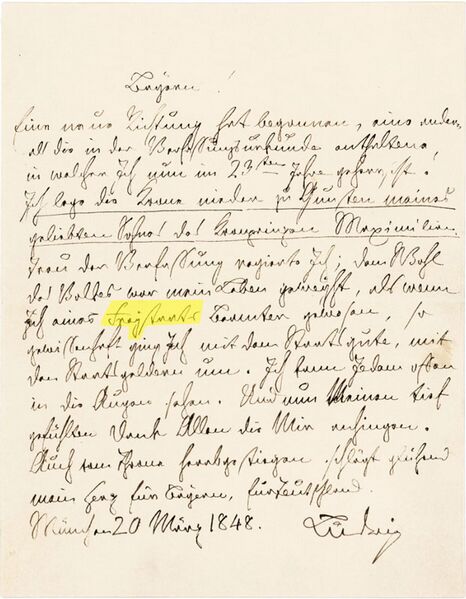 Bayern!
Eine neue Richtung hat begonnen, eine andere,
als die in der Verfassungsurkunde enthaltene,
in welcher Ich nun im 23sten Jahre geherrscht.
Ich lege die Krone nieder zu Gunsten meines
geliebten Sohnes des Kronprinzen Maximilian.
Treu der Verfassung regierte Ich; dem Wohl
des Volkes war mein Leben geweiht, als wenn
Ich eines Freystaats Beamter gewesen, so
gewissenhaft ging Ich mit dem Staatsgute, mit
den Staatsgeldern um. Ich kann Jedem offen
in die Augen sehen. Und nun Meinen tief
gefühlten Dank Allen die Mir anhingen.
Auch vom Throne herabgestiegen schlägt glühend
mein Herz für Bayern, für Teutschland.
München 20 März 1848. Ludwig